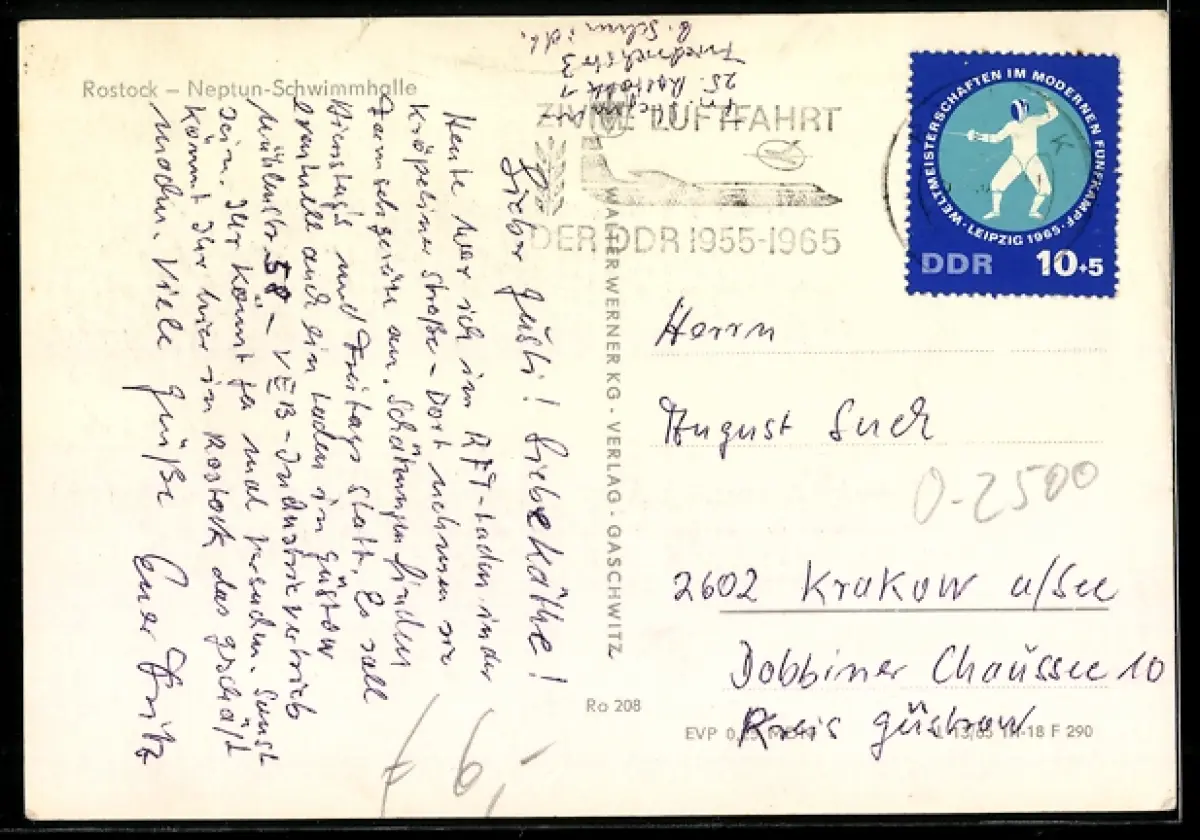 Rostock – Neptun-Schwimmhalle
G. Schmidt
Friedrichstr 3
25. Rostock 1
ZIVILE LUFTFAHRT
DER DDR 1955-1965
WELTMEISTERSCHAFTEN IM MODERNEN FÜNFKAMPF · LEIPZIG 1965 ·
DDR 10+5
Lieber Gusti! Liebe Käthe!
Heute war ich im RFT-Laden in der
Kröpeliner Straße – Dort nehmen sie
Fernsehgeräte an. Schätzungen finden
Dienstags und Freitags statt. Es soll
eventuell auch ein Laden in Güstrow
Mühlenstr. 58 – VEB-Industrievertrieb
sein. Ihr könnt ja mal besuchen. Sonst
könnt Ihr hier in Rostock das Geschäft
machen. Viele Grüße Euer Fritz
WALTER WERNER KG · VERLAG · GASCHWITZ
Herrn
August Suck
O-2500
2602 Krakow a/See
Dobbiner Chaussee 10
Kreis Güstrow
Ro 208
EVP
III-18 F 290